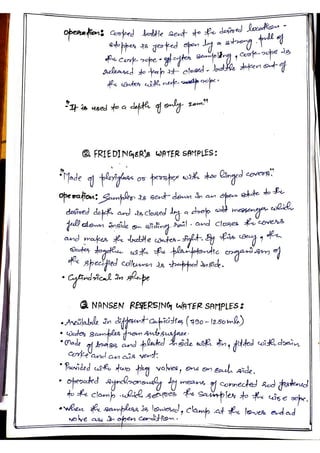 operation: corked bottle sent to the desired location -
stopper is jerked open by a strong pull of
the cork rope - after sampling, cork-rope is
released to keep it closed - bottle taken out of
the water with neck rope.
"It is used to a depth of only 20m"
② FRIEDINGER'S WATER SAMPLES:
• Made of plexiglass or perspex with two hinged covers.
operation: Sampler is sent down in an open state to the
desired depth and is closed by a drop messenger which
full down inside on sliding rail - and closes the covers
and makes the bottle water-tight. By this way, the
water together with the planktonic organism of
the specified column is trapped inside.
• Cylindrical in shape
③ NANSEN REVERSING WATER SAMPLES:
• Available in different capacities (-1250mls)
• water samples from subsurface.
• Made of brass and plated inside with tin, fitted with drain
cork and an air vent.
• Provided with two plug valves, one on each side.
• operated synchronously by means of connected rod fastened
to the clamp which secures the sampler to the wire rope.
• When the sampler is lowered, clamp at the lower end ad
valve are in open condition.